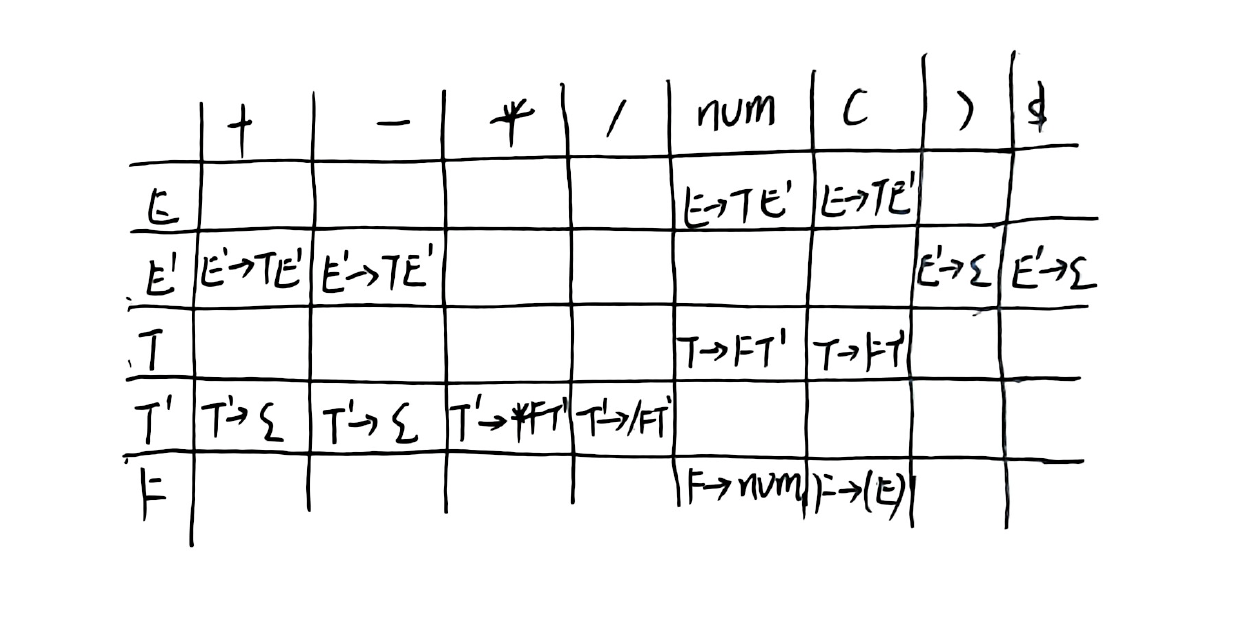 + - * / num ( ) $
E E→TE' E→TE'
E' E'→TE' E'→TE' E'→Σ E'→Σ
T T→FT' T→FT'
T' T'→Σ T'→Σ T'→*FT' T'→/FT'
F F→num F→(E)